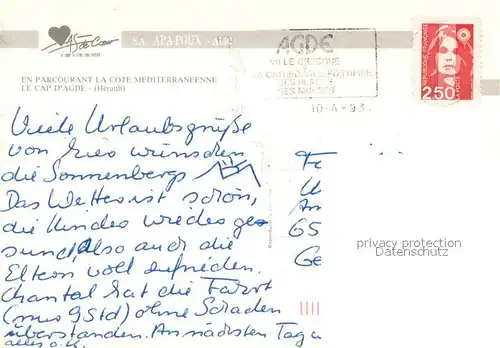 As de Coeur
S.A. APA-POUX - ALBI
AGDE
VILLE GRECQUE
SA CATHEDRALE FORTIFIEE
SES PLAGES
SES MUSEES
10-4-93
REPUBLIQUE FRANÇAISE
LA POSTE
2,50
EN PARCOURANT LA COTE MEDITERRANEENNE
LE CAP D'AGDE - (Hérault)
Viele Urlaubsgrüße
von hier wünschen
die Sonnenbergs
Das Wetter ist schön,
die Kinder wieder ge-
sund, also auch die
Eltern voll zufrieden.
Chantal hat die Fahrt
(nur 9 Std) ohne Schaden
überstanden. Am nächsten Tag w
alles o.k.
F
U
An
65
Ge
privacy protection
Datenschutz